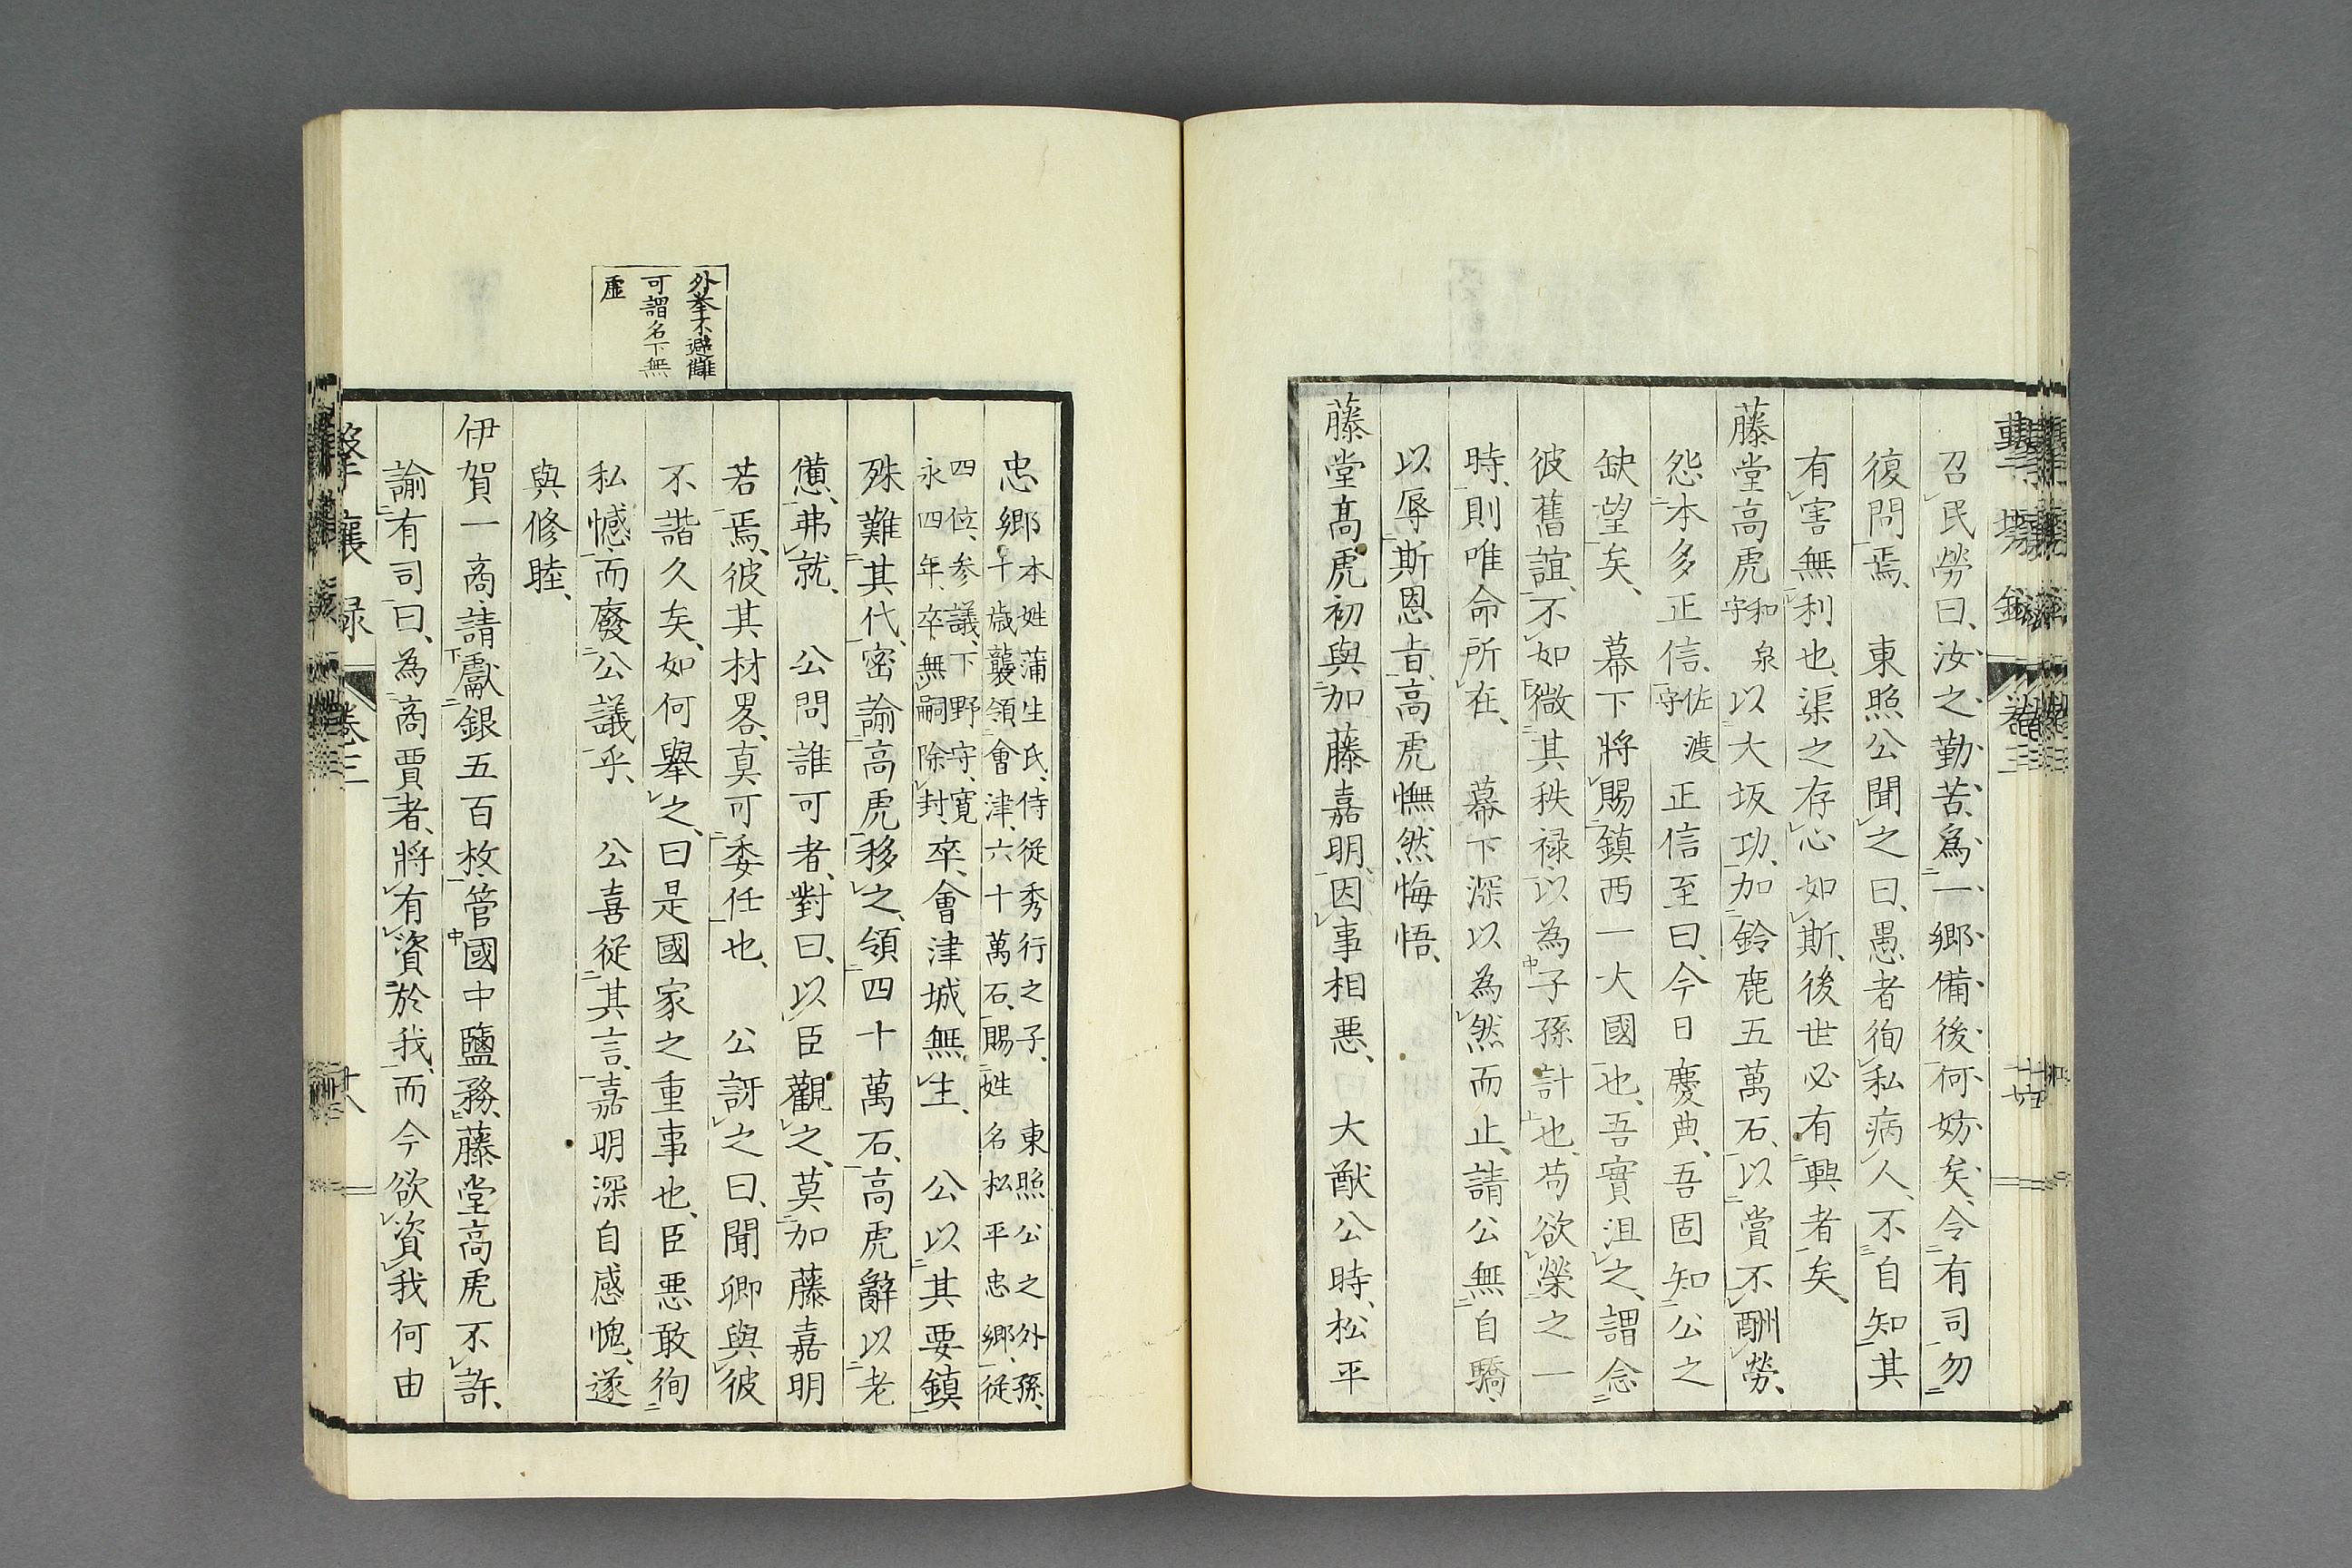 召民勞曰、汝之勤苦、爲一郷備後、何妨矣、令有司勿
復問焉、東照公聞之曰、愚者徇私病人、不自知其
有害無利也、渠之存心如斯、後世必有興者矣、
藤堂高虎和泉守以大坂功、加鈴鹿五萬石、以賞不酬勞、
怨本多正信、佐渡守正信至曰、今日慶典、吾固知公之
缺望矣、幕下將賜鎮西一大國也、吾實沮之、謂念
彼舊誼、不如微其秩禄以為子孫計也、苟欲榮之一
時、則唯命所在、幕下深以為然而止、請公無自驕、
以辱斯恩㫖、高虎憮然悔悟、
藤堂高虎初與加藤嘉明、因事相悪、大猷公時、松平
外擧不避讎
可謂名下無
虛
忠郷本姓蒲生氏、侍從秀行之子、東照公之外孫、
十歳襲領會津、六十萬石、賜姓名松平忠郷、從
四位、参議、下野守、寛
永四年、卒、無嗣除封、卒、會津城無主、公以其要鎮
殊難其代、密諭高虎移之、領四十萬石、高虎辭以老
憊、弗就、公問誰可者、對曰、以臣觀之、莫加藤嘉明
若焉、彼其材畧、真可委任也、公訝之曰、聞卿與彼
不諧久矣、如何舉之、曰是國家之重事也、臣悪敢徇
私憾、而廢公議乎、公喜從其言、嘉明深自感愧、遂
與修睦、
伊賀一商、請獻銀五百枚、管國中鹽務、藤堂高虎不許、
諭有司曰、為商賈者、將有資於我、而今欲資我何由
卷三